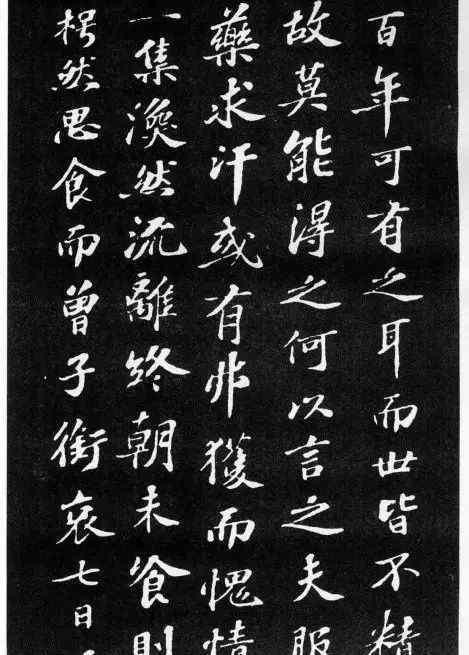 百年可有之耳而世皆不精
故莫能得之何以言之夫服
藥求汗或有弗獲而愧情
一集渙然流離終朝未餐則
枵然思食而曾子銜哀七日